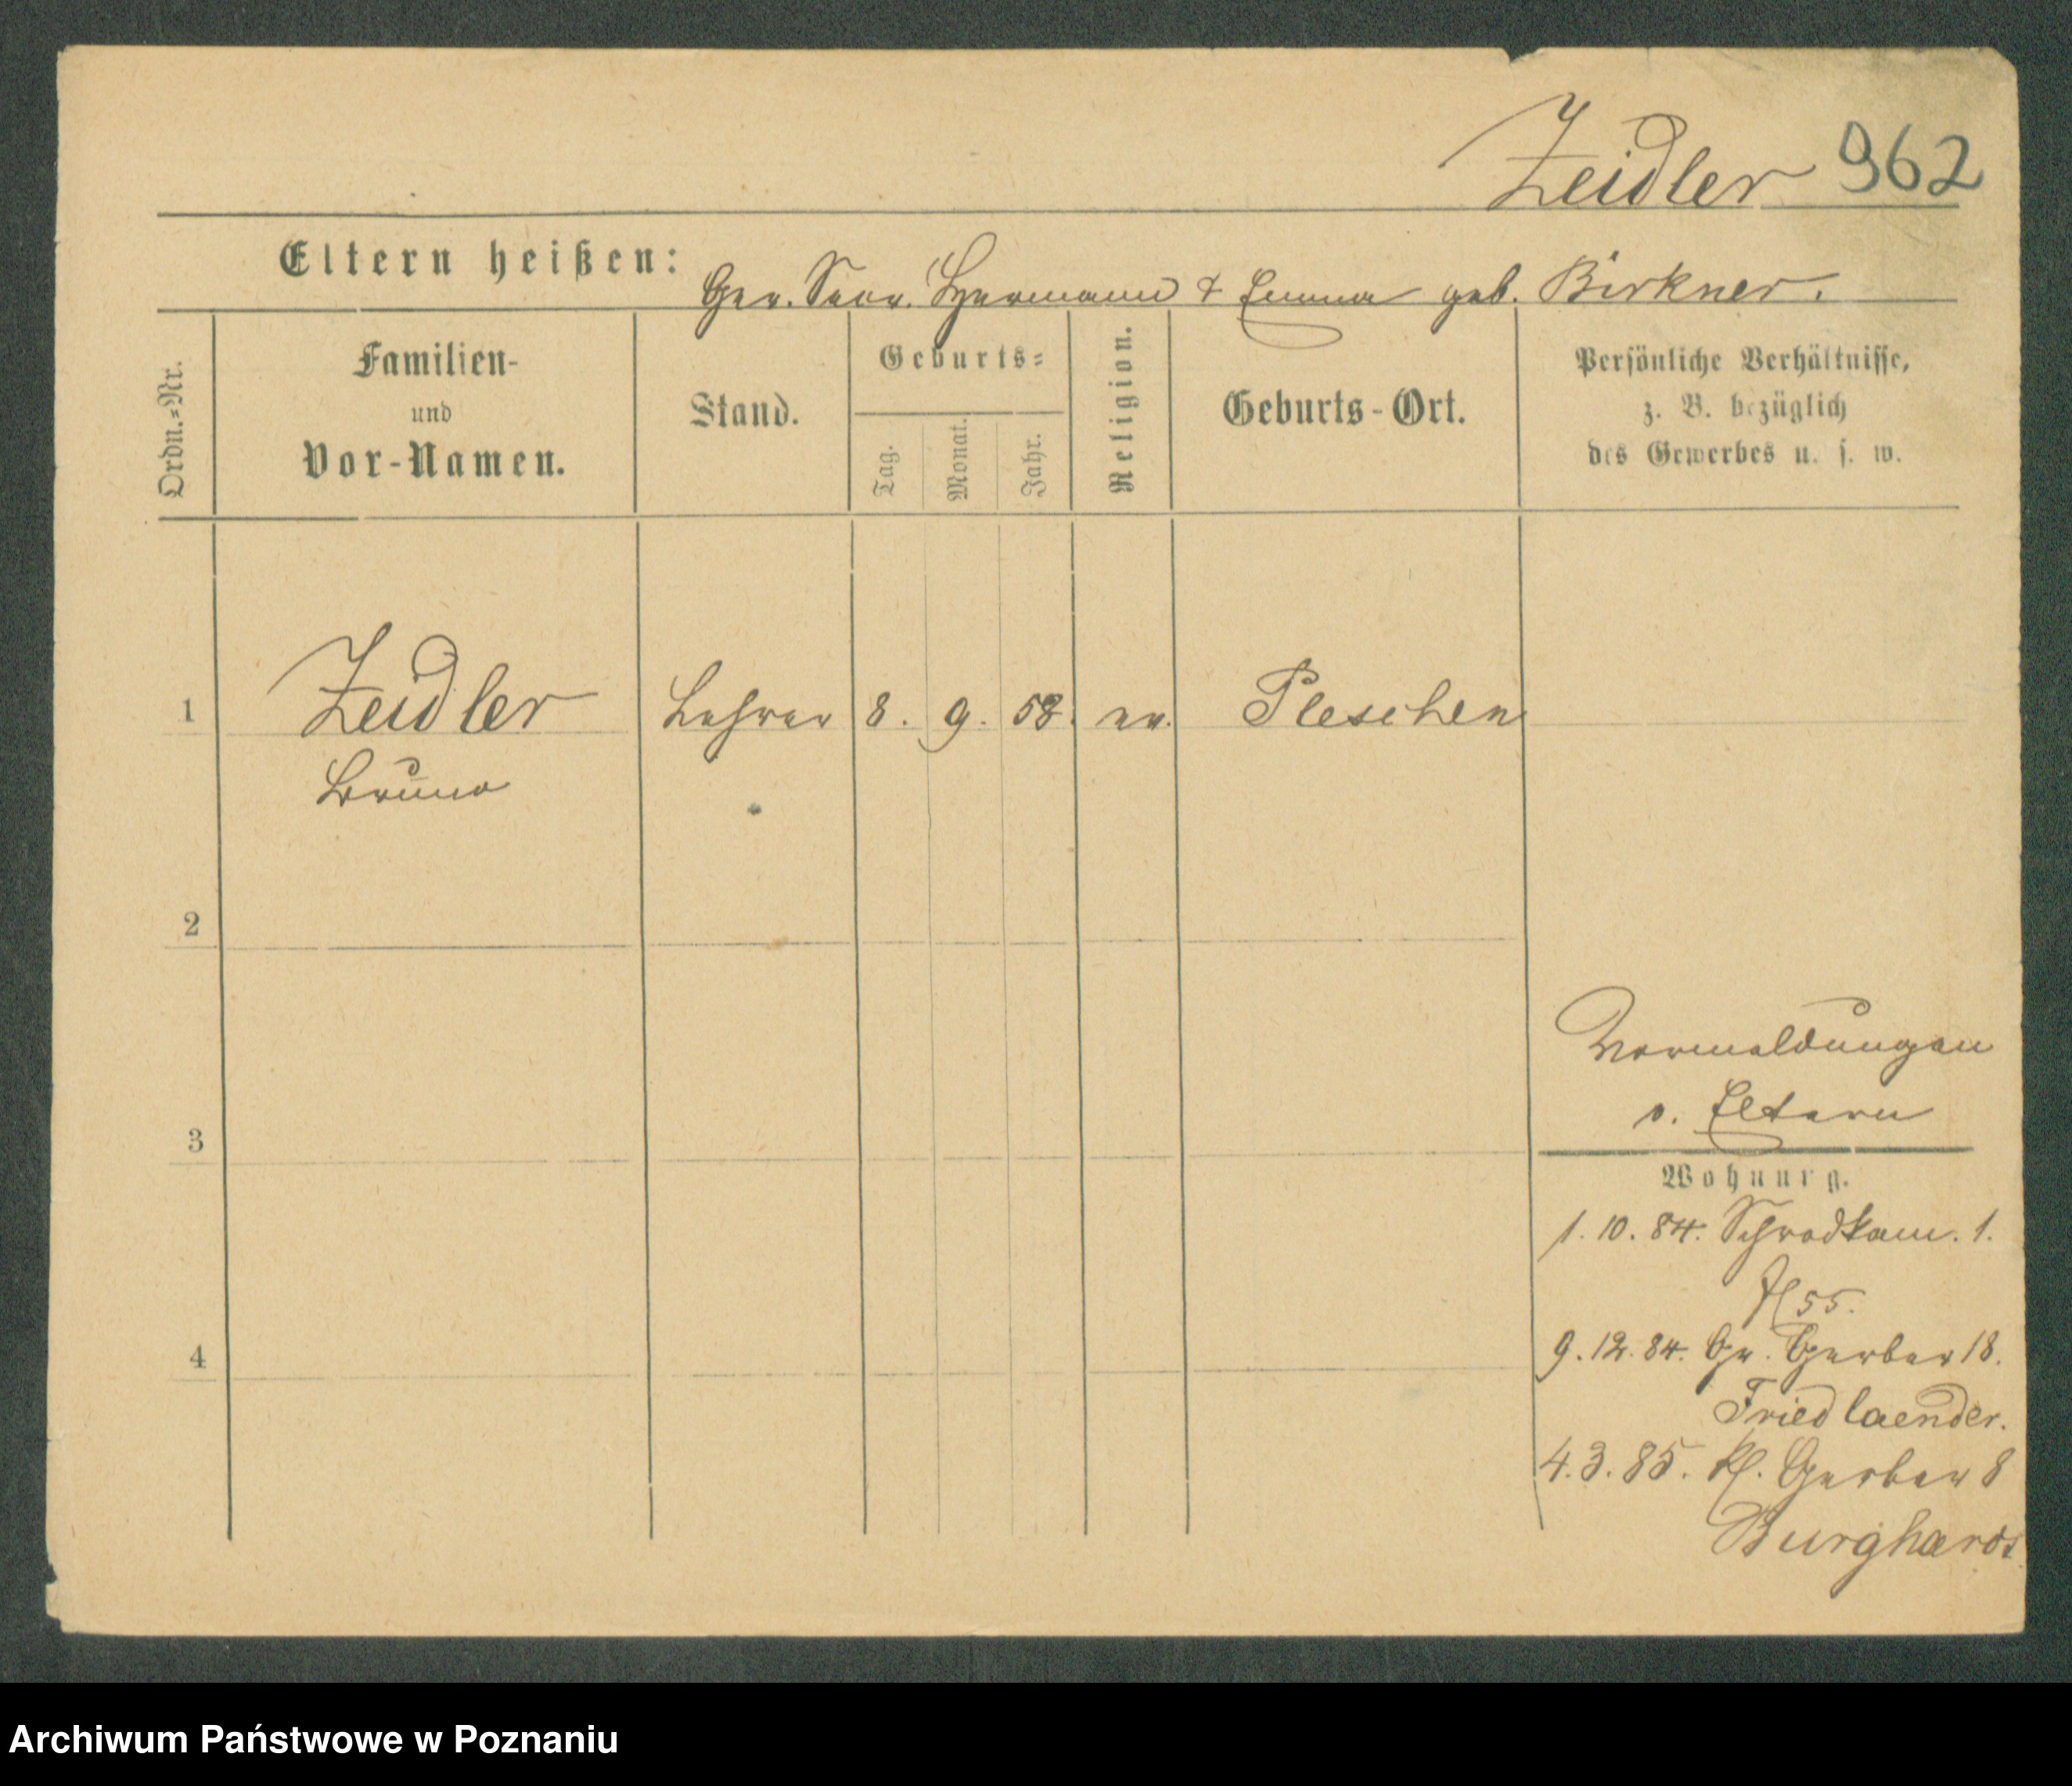 Zeidler 962
Eltern heißen: Ger. Secr. Hermann & Emma geb. Birkner.
Ordn.=Nr.
Familien-
und
Vor-Namen.
Stand.
Geburts=
Tag.
Monat.
Jahr.
Religion.
Geburts-Ort.
Persönliche Verhältnisse,
z. B. bezüglich
des Gewerbes u. s. w.
1 Zeidler Lehrer 8. 9. 58. ev. Pleschen
Bruno
2
3
4
Vormeldungen
v. Eltern
Wohnung.
1. 10. 84. Schrodkam. 1.
55.
9. 12. 84. Gr. Gerber 18.
Friedlaender.
4. 3. 85. Kl. Gerber 8
Burghardt
Archiwum Państwowe w Poznaniu